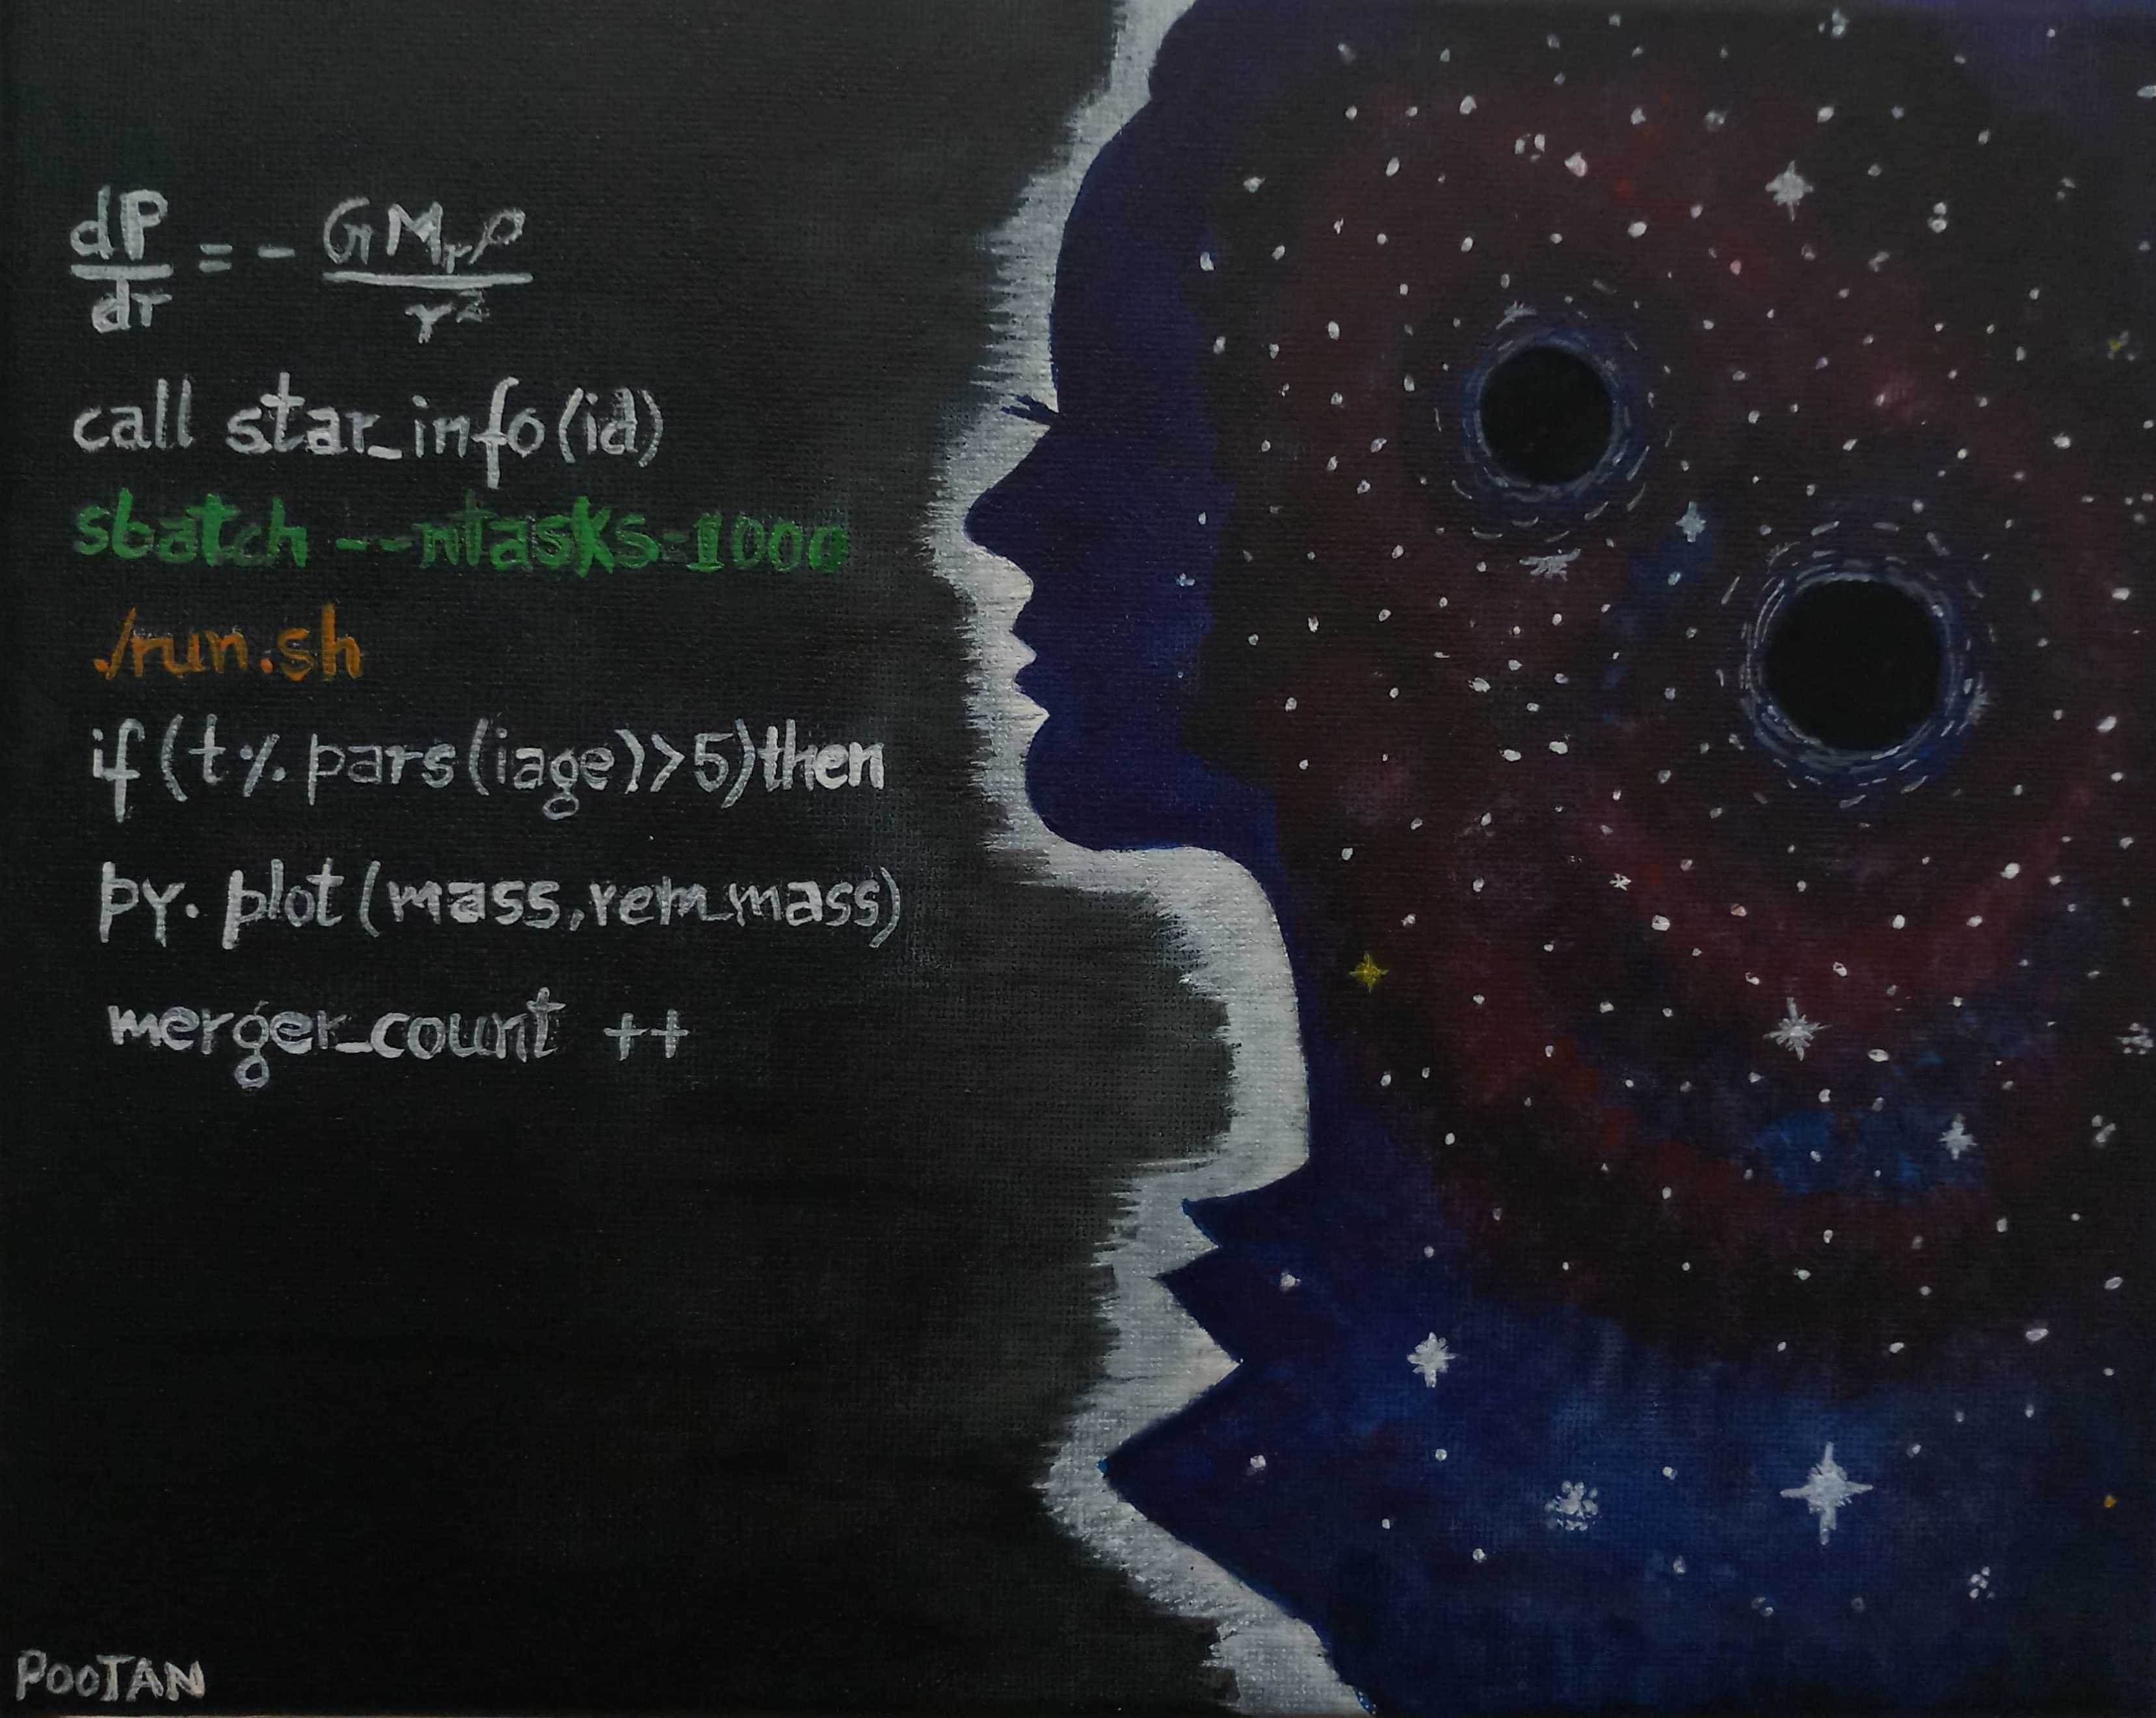 dP/dr = - GMrρ/r²
call star_info(id)
sbatch --ntasks=1000
./run.sh
if(t%pars(iage)>5)then
py.plot(mass,rem_mass)
merger_count ++
PooTAN